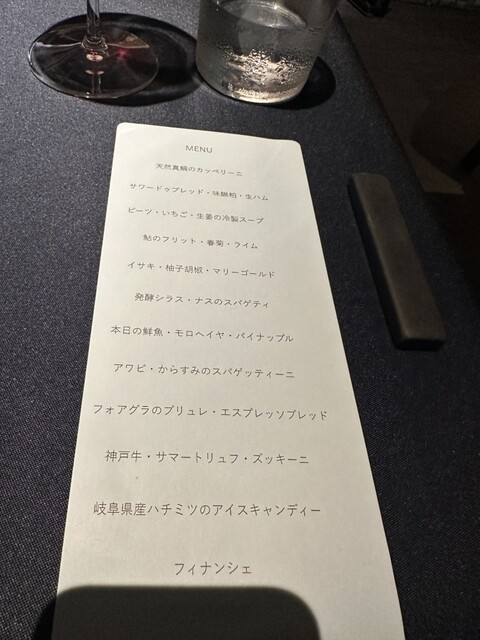 MENU
天然真鯛のカッペリーニ
サワードゥブレッド・味醂粕・生ハム
ビーツ・いちご・生姜の冷製スープ
鮎のフリット・春菊・ライム
イサキ・柚子胡椒・マリーゴールド
発酵シラス・ナスのスパゲティ
本日の鮮魚・モロヘイヤ・パイナップル
アワビ・からすみのスパゲッティーニ
フォアグラのブリュレ・エスプレッソブレッド
神戸牛・サマートリュフ・ズッキーニ
岐阜県産ハチミツのアイスキャンディー
フィナンシェ